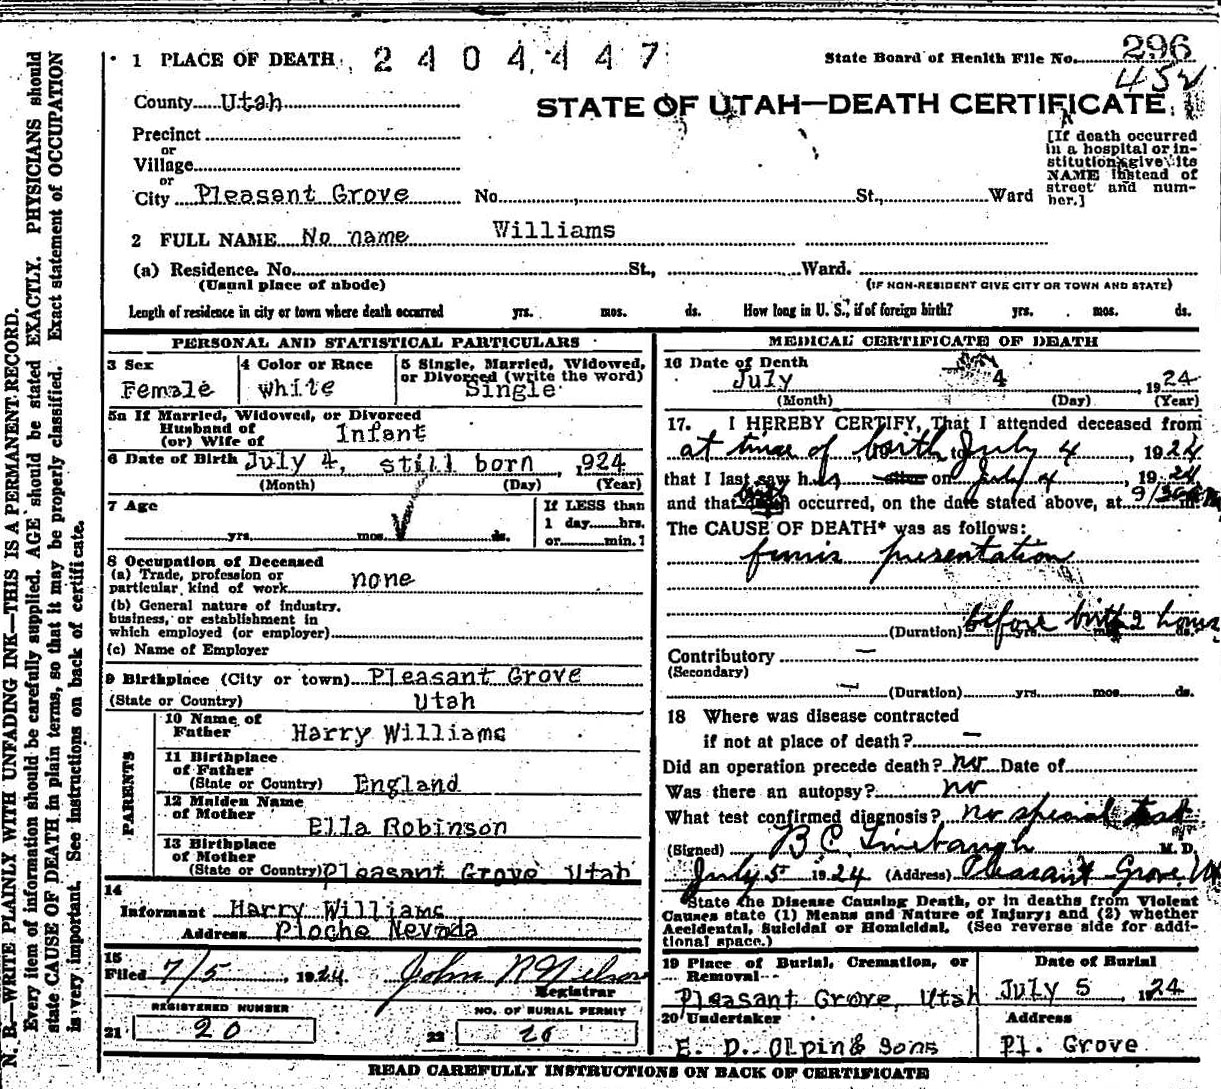 N. B.—WRITE PLAINLY WITH UNFADING INK—THIS IS A PERMANENT RECORD.
Every item of information should be carefully supplied. AGE should be stated EXACTLY. PHYSICIANS should
state CAUSE OF DEATH in plain terms, so that it may be properly classified. Exact statement of OCCUPATION
is very important. See instructions on back of certificate.
1 PLACE OF DEATH 2404447
State Board of Health File No. 296
452
County Utah
STATE OF UTAH—DEATH CERTIFICATE
Precinct
or
Village
or
City Pleasant Grove No. St., Ward
[If death occurred
in a hospital or in-
stitution, give its
NAME instead of
street and num-
ber.]
2 FULL NAME No name Williams
(a) Residence. No. St., Ward.
(Usual place of abode) (IF NON-RESIDENT GIVE CITY OR TOWN AND STATE)
Length of residence in city or town where death occurred yrs. mos. ds. How long in U. S., if of foreign birth? yrs. mos. ds.
PERSONAL AND STATISTICAL PARTICULARS
3 Sex
Female
4 Color or Race
White
5 Single, Married, Widowed,
or Divorced (write the word)
Single
5a If Married, Widowed, or Divorced
Husband of
(or) Wife of Infant
6 Date of Birth July 4, still born , 1924
(Month) (Day) (Year)
7 Age
yrs. mos. ds.
If LESS than
1 day hrs.
or min.?
8 Occupation of Deceased
(a) Trade, profession or
particular kind of work none
(b) General nature of industry,
business, or establishment in
which employed (or employer)
(c) Name of Employer
9 Birthplace (City or town) Pleasant Grove
(State or Country) Utah
PARENTS
10 Name of
Father Harry Williams
11 Birthplace
of Father
(State or Country) England
12 Maiden Name
of Mother
Ella Robinson
13 Birthplace
of Mother
(State or Country) Pleasant Grove Utah
14
Informant Harry Williams
Address Pioche Nevada
15
Filed 7/5 1924 John R Nielson
Registrar
REGISTERED NUMBER
21 20
NO. OF BURIAL PERMIT
22 20
MEDICAL CERTIFICATE OF DEATH
16 Date of Death
July 4 , 1924
(Month) (Day) (Year)
17. I HEREBY CERTIFY, That I attended deceased from
at time of birth to July 4 , 1924
that I last saw h on July 4 , 1924
and that occurred, on the date stated above, at 9/30 m.
The CAUSE OF DEATH* was as follows:
funis presentation
(Duration) before birth 2 hours
Contributory —
(Secondary)
— (Duration) yrs. mos. ds.
18 Where was disease contracted
if not at place of death? —
Did an operation precede death? no Date of
Was there an autopsy? no
What test confirmed diagnosis? no special test
(Signed) B C Linebaugh M. D.
July 5 1924 (Address) Pleasant Grove Ut
State the Disease Causing Death, or in deaths from Violent
Causes state (1) Means and Nature of Injury; and (2) whether
Accidental, Suicidal or Homicidal. (See reverse side for addi-
tional space.)
19 Place of Burial, Cremation, or
Removal
Pleasant Grove, Utah
Date of Burial
July 5 , 1924
20 Undertaker
E. D. Olpin & Sons
Address
Pl. Grove
READ CAREFULLY INSTRUCTIONS ON BACK OF CERTIFICATE